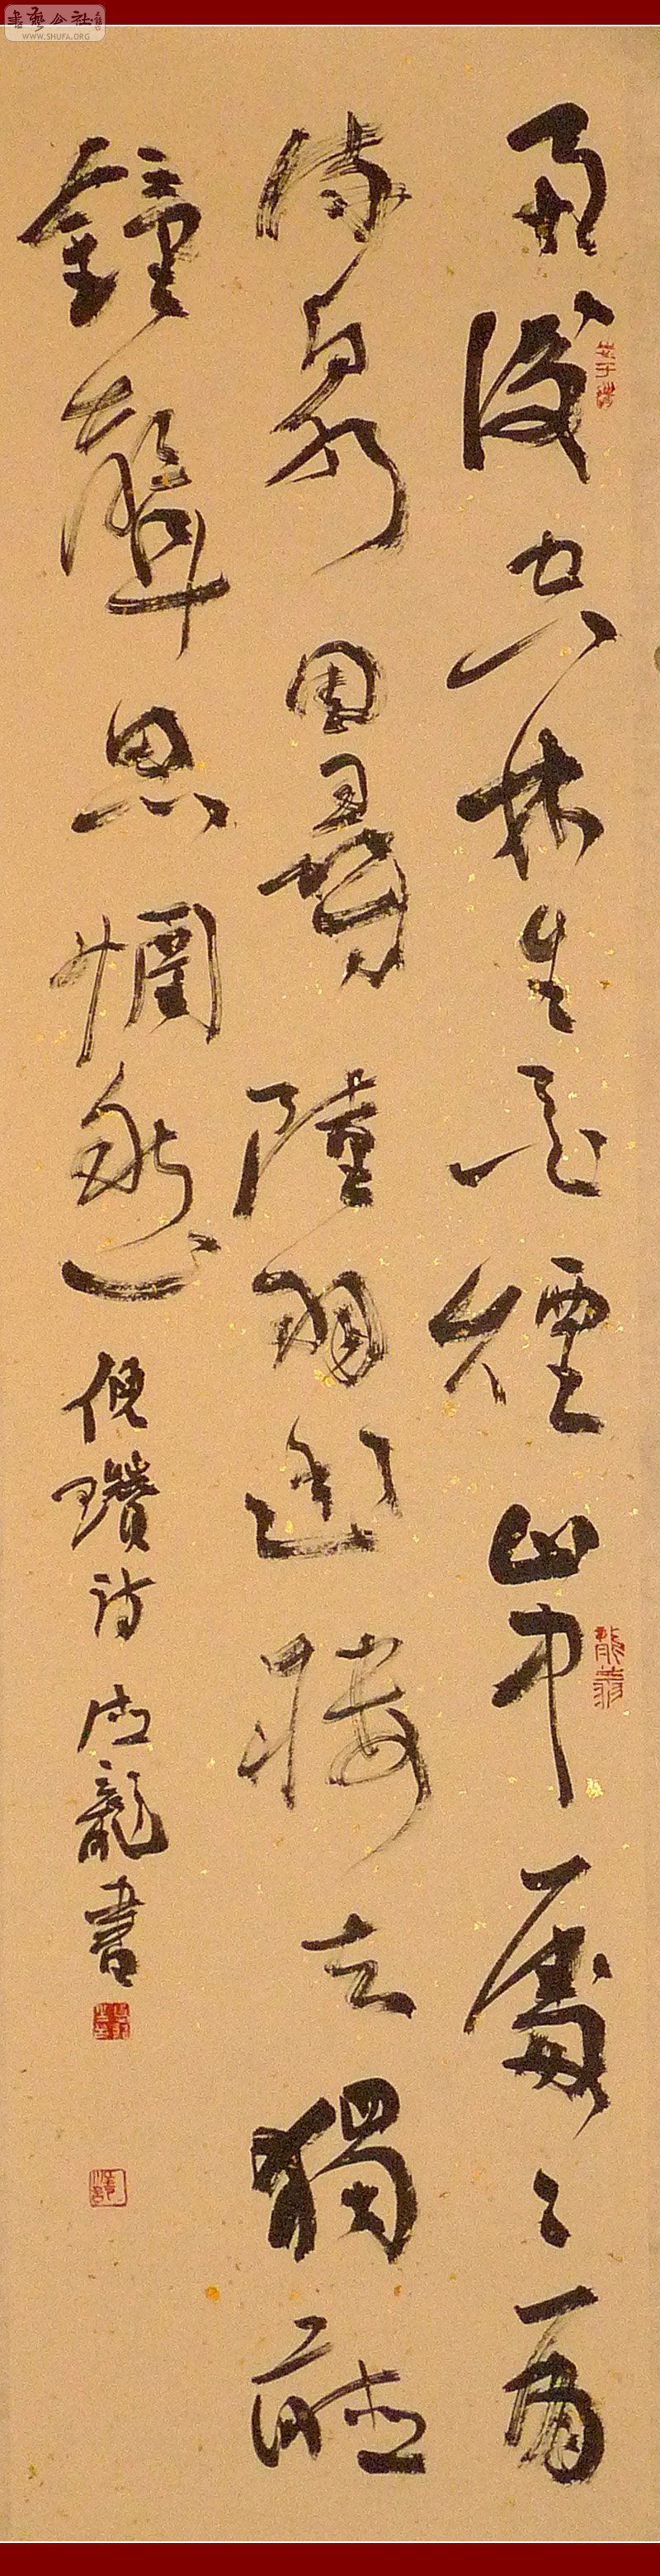 書藝公社
WWW.SHUFA.ORG
雨後空林生白煙山中處々有
流泉因尋陸羽幽棲去獨聽
鐘聲思惘然 倪瓚詩 龍書